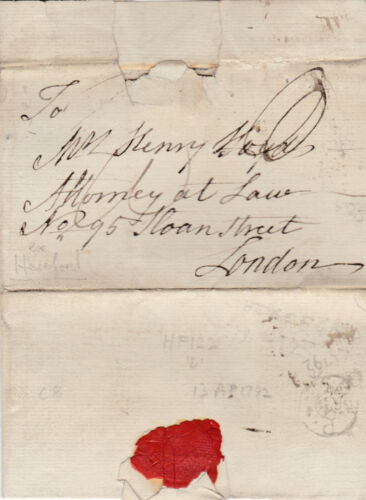 To
Mr Henry
Attorney at Law
No 95 Sloan street
London
ex
Hereford
HF122
CR
13 AP 1792